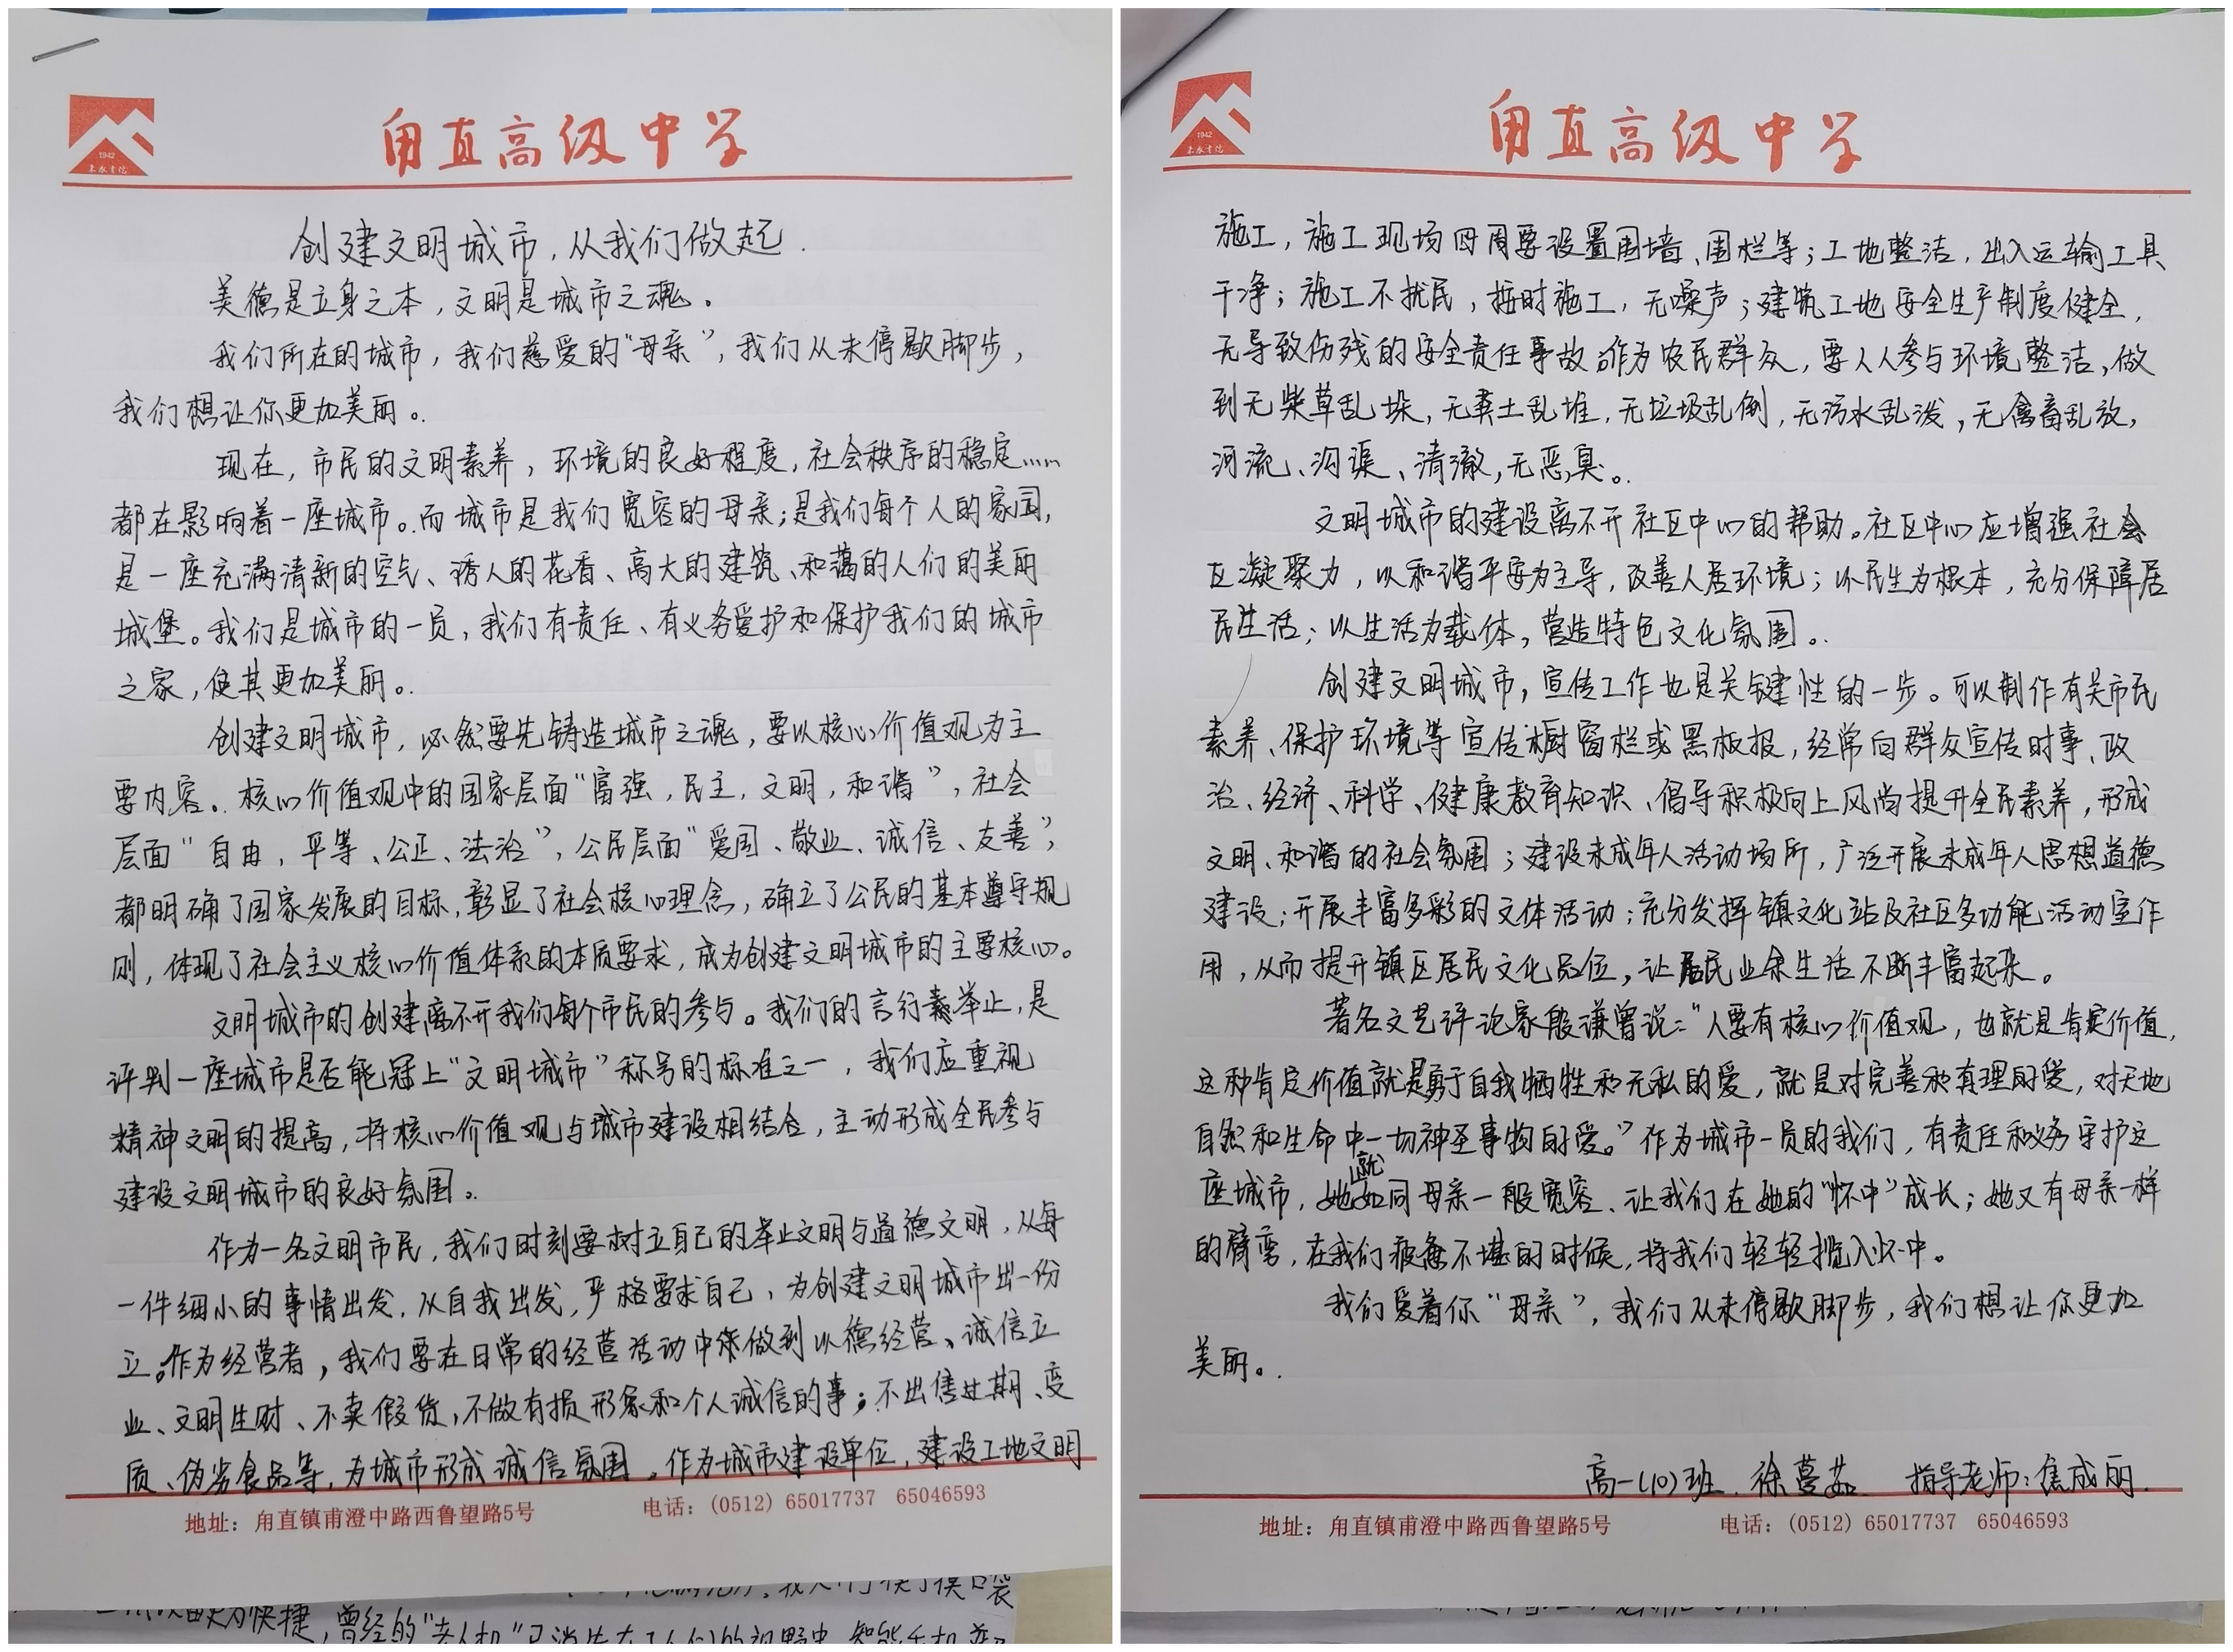 1942
甪直高级中学
创建文明城市，从我们做起.
美德是立身之本，文明是城市之魂。
我们所在的城市，我们慈爱的“母亲”，我们从未停歇脚步，
我们想让你更加美丽。
现在，市民的文明素养，环境的良好程度，社会秩序的稳定……
都在影响着一座城市。而城市是我们宽容的母亲；是我们每个人的家园，
是一座充满清新的空气、诱人的花香、高大的建筑、和蔼的人们的美丽
城堡。我们是城市的一员，我们有责任、有义务爱护和保护我们的城市
之家，使其更加美丽。
创建文明城市，必然要先铸造城市之魂，要以核心价值观为主
要内容。核心价值观中的国家层面“富强，民主，文明，和谐”，社会
层面“自由，平等、公正、法治”，公民层面“爱国、敬业、诚信、友善”，
都明确了国家发展的目标，彰显了社会核心理念，确立了公民的基本遵守规
则，体现了社会主义核心价值体系的本质要求，成为创建文明城市的主要核心。
文明城市的创建离不开我们每个市民的参与。我们的言行举止，是
评判一座城市是否能冠上“文明城市”称号的标准之一，我们应重视
精神文明的提高，将核心价值观与城市建设相结合，主动形成全民参与
建设文明城市的良好氛围。
作为一名文明市民，我们时刻要树立自己的举止文明与道德文明，从每
一件细小的事情出发，从自我出发，严格要求自己，为创建文明城市出一份
立。作为经营者，我们要在日常的经营活动中做到以德经营、诚信立
业、文明生财、不卖假货，不做有损形象和个人诚信的事；不出售过期、变
质、伪劣食品等，为城市形成诚信氛围。作为城市建设单位，建设工地文明
地址：甪直镇甫澄中路西鲁望路5号 电话：(0512) 65017737 65046593
1942
甪直高级中学
施工，施工现场四周要设置围墙、围栏等；工地整洁，出入运输工具
干净；施工不扰民，按时施工，无噪声；建筑工地安全生产制度健全，
无导致伤残的安全责任事故。作为农民群众，要人人参与环境整洁，做
到无柴草乱垛，无粪土乱堆，无垃圾乱倒，无污水乱泼，无禽畜乱放，
河流、沟渠、清澈，无恶臭。
文明城市的建设离不开社区中心的帮助。社区中心应增强社会
区凝聚力，以和谐平安为主导，改善人居环境；以民生为根本，充分保障居
民生活；以生活为载体，营造特色文化氛围。
创建文明城市，宣传工作也是关键性的一步。可以制作有关市民
素养、保护环境等宣传橱窗栏或黑板报，经常向群众宣传时事、政
治、经济、科学、健康教育知识、倡导积极向上风尚提升全民素养，形成
文明、和谐的社会氛围；建设未成年人活动场所，广泛开展未成年人思想道德
建设；开展丰富多彩的文体活动；充分发挥镇文化站及社区多功能活动室作
用，从而提升镇区居民文化品位，让居民业余生活不断丰富起来。
著名文艺评论家殷谦曾说：“人要有核心价值观，也就是肯定价值，
这种肯定价值就是勇于自我牺牲和无私的爱，就是对完善和真理的爱，对天地
自然和生命中一切神圣事物的爱。”作为城市一员的我们，有责任和义务守护这
座城市，她就如同母亲一般宽容、让我们在她的“怀中”成长；她又有母亲一样
的臂弯，在我们疲惫不堪的时候，将我们轻轻揽入怀中。
我们爱着你“母亲”，我们从未停歇脚步，我们想让你更加
美丽。
高一(10)班 徐蔓茹 指导老师：焦成丽
地址：甪直镇甫澄中路西鲁望路5号 电话：(0512) 65017737 65046593
快捷，曾经的“老人机”已消失在了人们的视野中